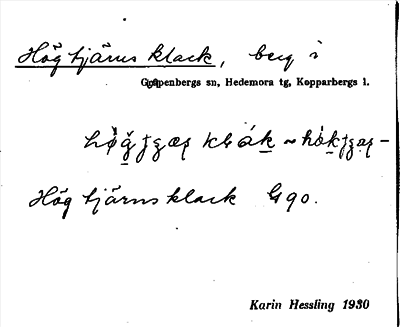 Högtjärns klack, berg i
Garpenbergs sn, Hedemora tg, Kopparbergs l.
Högtjärnsklack G90.
Karin Hessling 1930